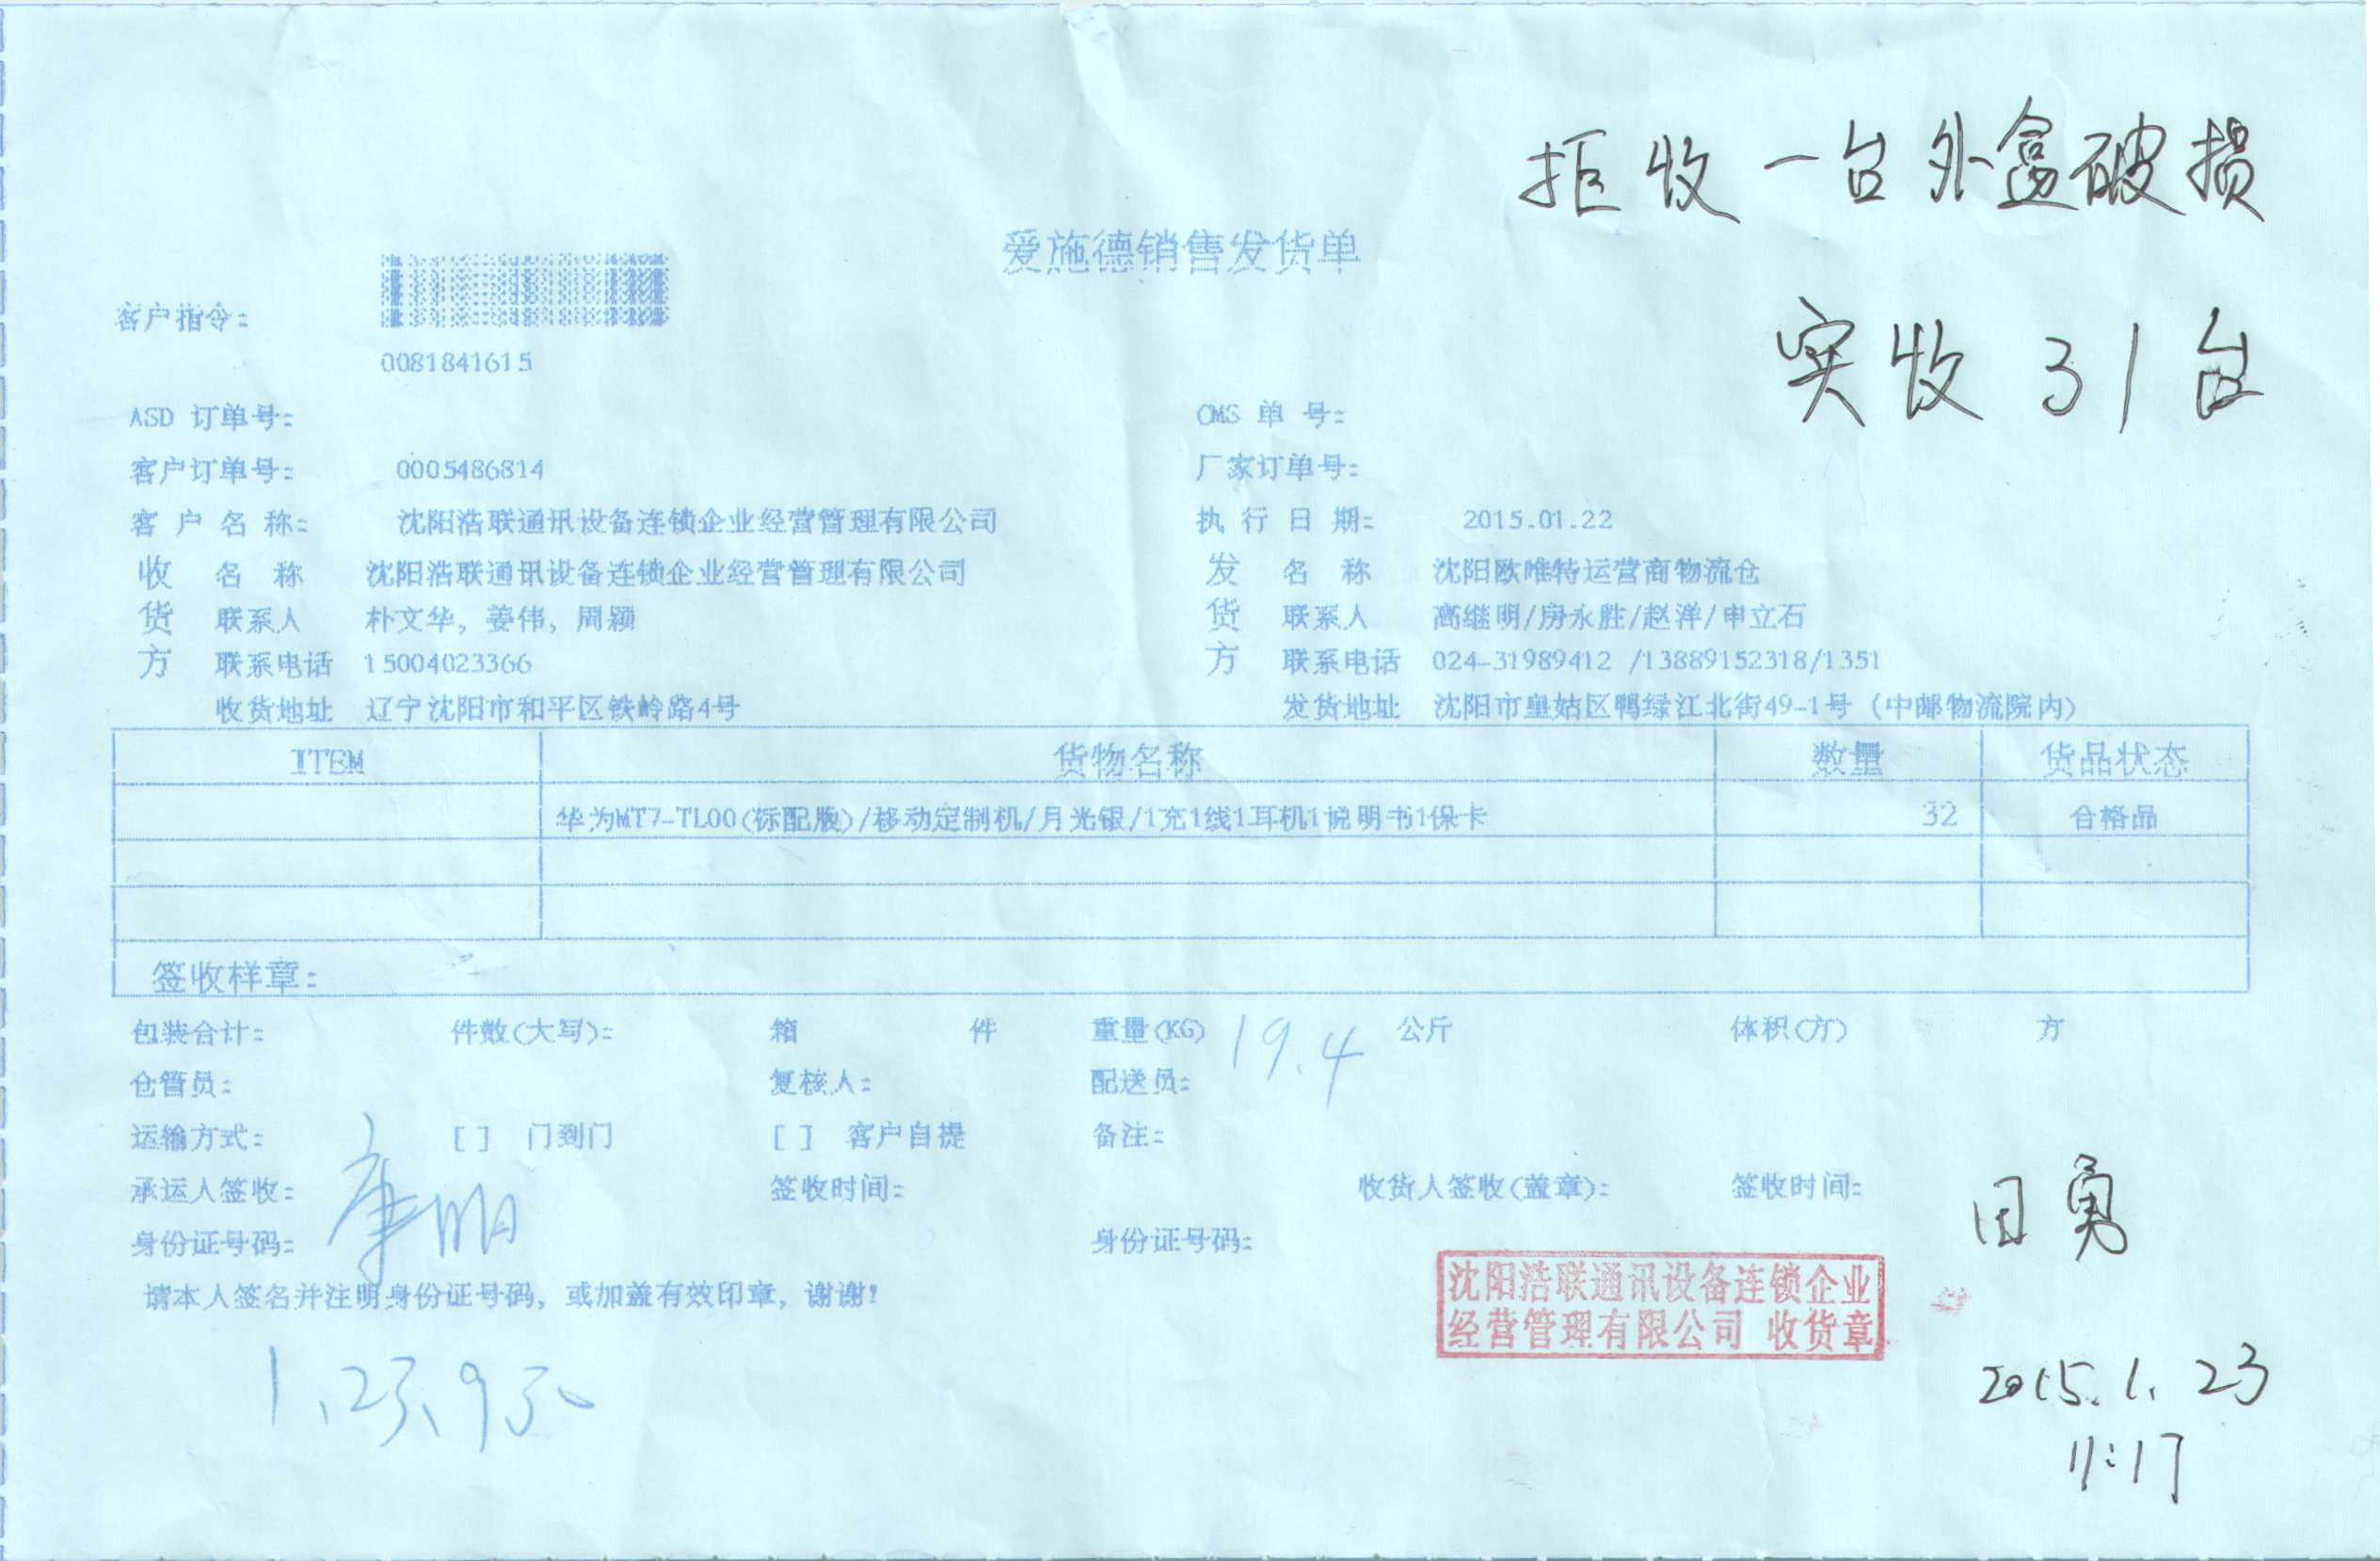 拒收一台外盒破损
爱施德销售发货单
客户指令:
0081841615
实收 31台
ASD 订单号: CMS 单 号:
客户订单号: 0005486814 厂家订单号:
客 户 名 称: 沈阳浩联通讯设备连锁企业经营管理有限公司 执 行 日 期: 2015.01.22
收 名 称 沈阳浩联通讯设备连锁企业经营管理有限公司 发 名 称 沈阳欧唯特运营商物流仓
货 联系人 朴文华, 姜伟, 周颖 货 联系人 高继明/房永胜/赵洋/申立石
方 联系电话 15004023366 方 联系电话 024-31989412 /13889152318/1351
收货地址 辽宁沈阳市和平区铁岭路4号 发货地址 沈阳市皇姑区鸭绿江北街49-1号 (中邮物流院内)
ITEM 货物名称 数量 货品状态
华为MT7-TL00(标配版)/移动定制机/月光银/1充1线1耳机1说明书1保卡 32 合格品
签收样章:
包装合计: 件数(大写): 箱 件 重量(KG) 19.4 公斤 体积(方) 方
仓管员: 复核人: 配送员:
运输方式: [ ] 门到门 [ ] 客户自提 备注:
承运人签收: 签收时间: 收货人签收(盖章): 签收时间: 田勇
身份证号码: 身份证号码:
请本人签名并注明身份证号码, 或加盖有效印章, 谢谢!
沈阳浩联通讯设备连锁企业
经营管理有限公司 收货章
2015.1.23
11:17